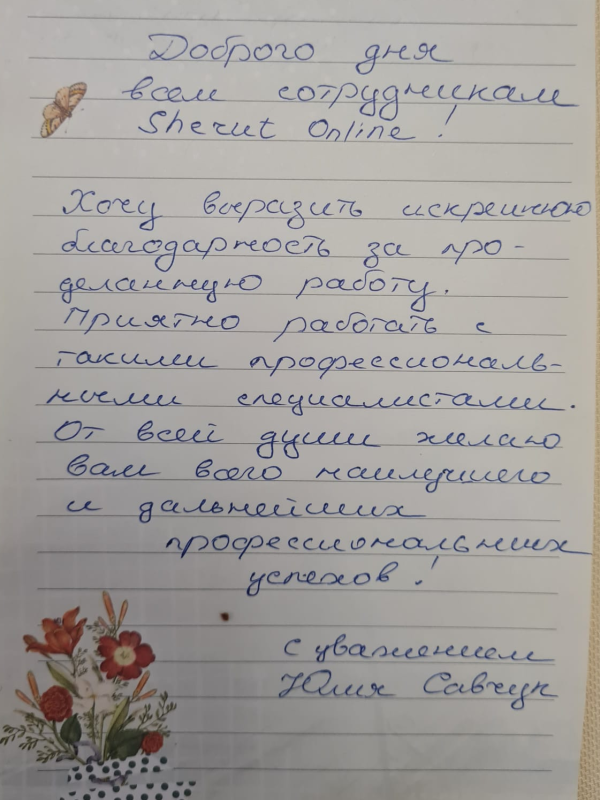 Доброго дня
всем сотрудникам
Sherut Online!
Хочу выразить искреннюю
благодарность за про-
деланную работу.
Приятно работать с
такими профессиональ-
ными специалистами.
От всей души желаю
вам всего наилучшего
и дальнейших
профессиональных
успехов!
с уважением
Юлия Савчук